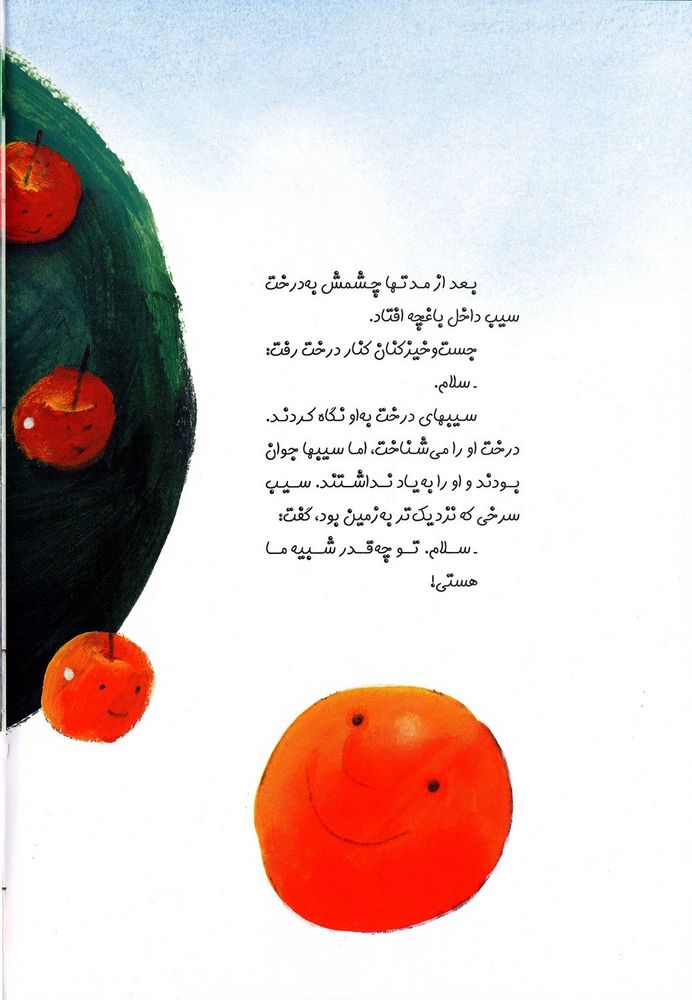 بعد از مدتها چشمش به‌درخت
سیب داخل باغچه افتاد.
جست‌وخیزکنان کنار درخت رفت:
ـ سلام.
سیبهای درخت به‌او نگاه کردند.
درخت او را می‌شناخت، اما سیبها جوان
بودند و او را به‌یاد نداشتند. سیب
سرخی که نزدیک‌تر به‌زمین بود، گفت:
ـ سلام. تو چه‌قدر شبیه ما
هستی!